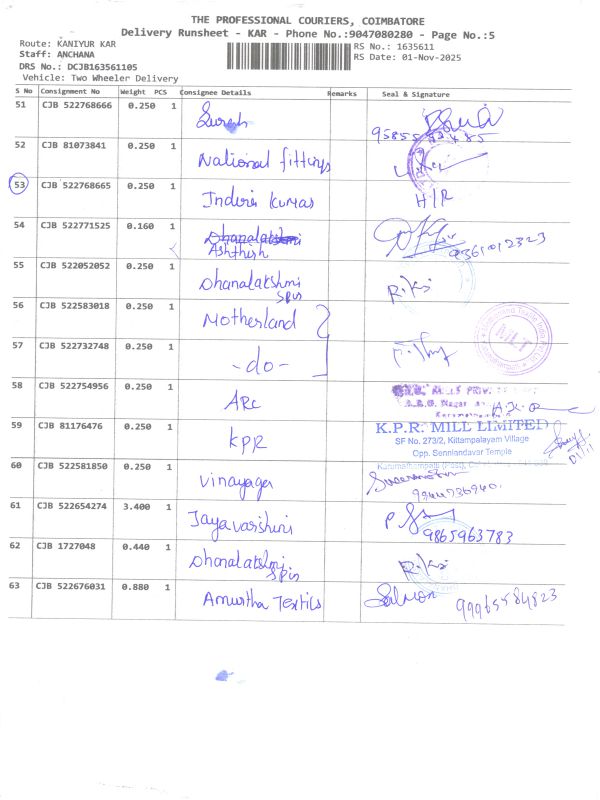 THE PROFESSIONAL COURIERS, COIMBATORE
Delivery Runsheet - KAR - Phone No.:9047080280 - Page No.:5
Route: KANIYUR KAR
RS No.: 1635611
Staff: ANCHANA
RS Date: 01-Nov-2025
DRS No.: DCJB163561105
Vehicle: Two Wheeler Delivery
S No Consignment No Weight PCS Consignee Details Remarks Seal & Signature
51 CJB 522768666 0.250 1 Suresh
52 CJB 81073841 0.250 1 National fittings
53 CJB 522768665 0.250 1 Indira Kumar H/R
54 CJB 522771525 0.160 1 Dhanalakshmi
Ashthish 9361012323
55 CJB 522052052 0.250 1 Dhanalakshmi
Spis
56 CJB 522583018 0.250 1 Motherland
57 CJB 522732748 0.250 1 -do-
MLT
58 CJB 522754956 0.250 1 ARC
59 CJB 81176476 0.250 1 KPR
K.P.R. MILL LIMITED
SF No. 273/2, Kittampalayam Village
Opp. Senniandavar Temple
60 CJB 522581850 0.250 1 Vinayaga
9944736940.
61 CJB 522654274 3.400 1 Jayavarshini
9865963783
62 CJB 1727048 0.440 1 Dhanalakshmi
Spis
63 CJB 522676031 0.880 1 Amurtha Textils Salmon 99965584823